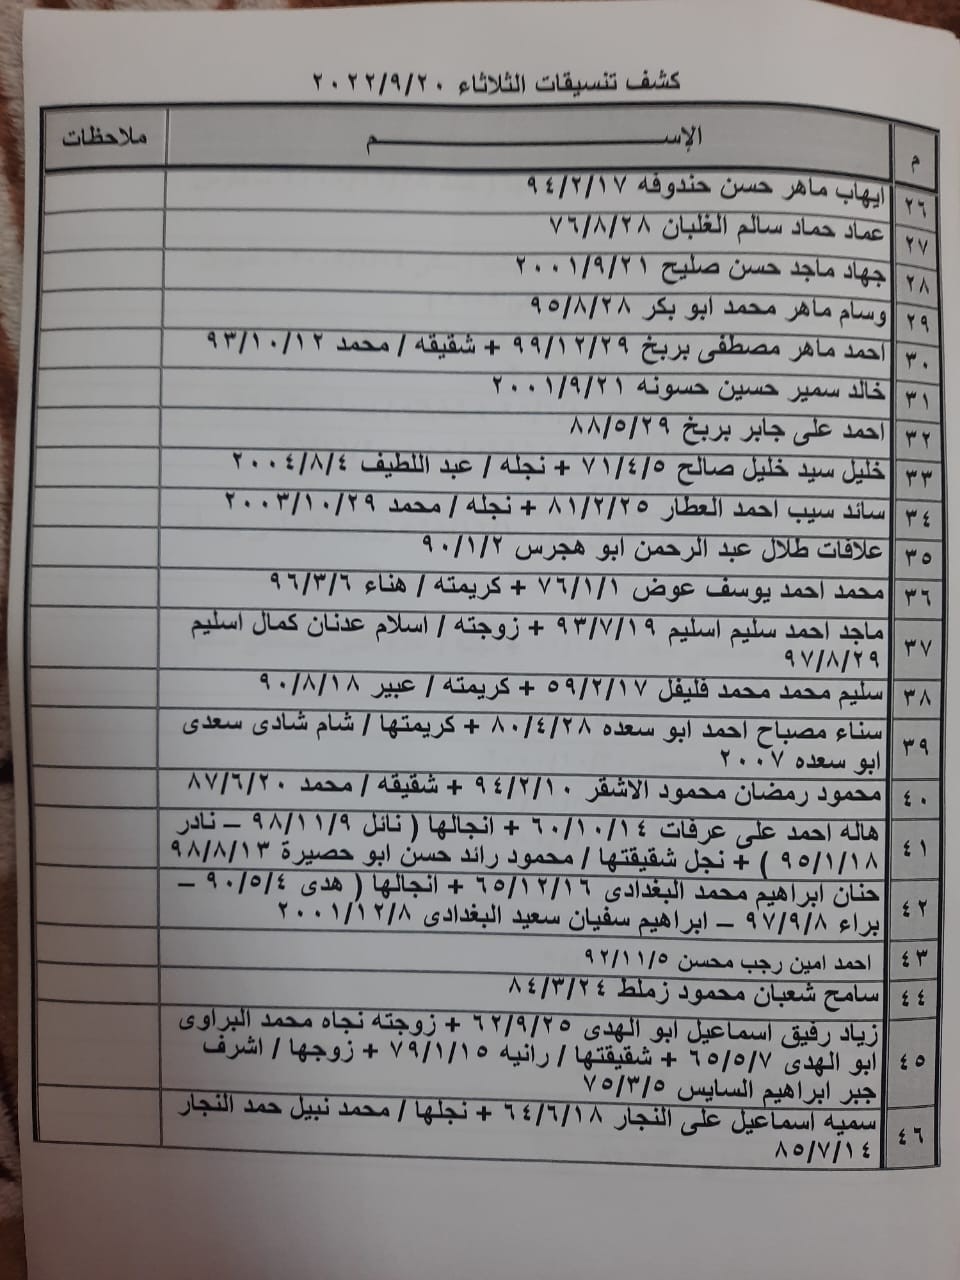 كشف تنسيقات الثلاثاء ٢٠٢٢/٩/٢٠
م الإســـم ملاحظات
٢٦ ايهاب ماهر حسن حندوفه ٩٤/٢/١٧
٢٧ عماد حماد سالم الغلبان ٧٦/٨/٢٨
٢٨ جهاد ماجد حسن صليح ٢٠٠١/٩/٢١
٢٩ وسام ماهر محمد ابو بكر ٩٥/٨/٢٨
٣٠ احمد ماهر مصطفى بربخ ٩٩/١٢/٢٩ + شقيقه / محمد ٩٣/١٠/١٢
٣١ خالد سمير حسين حسونه ٢٠٠١/٩/٢١
٣٢ احمد على جابر بربخ ٨٨/٥/٢٩
٣٣ خليل سيد خليل صالح ٧١/٤/٥ + نجله / عبد اللطيف ٢٠٠٤/٨/٤
٣٤ سائد سيب احمد العطار ٨١/٢/٢٥ + نجله / محمد ٢٠٠٣/١٠/٢٩
٣٥ علافات طلال عبد الرحمن ابو هجرس ٩٠/١/٢
٣٦ محمد احمد يوسف عوض ٧٦/١/١ + كريمته / هناء ٩٦/٣/٦
٣٧ ماجد احمد سليم اسليم ٩٣/٧/١٩ + زوجته / اسلام عدنان كمال اسليم
٩٧/٨/٢٩
٣٨ سليم محمد محمد فليفل ٥٩/٢/١٧ + كريمته / عبير ٩٠/٨/١٨
٣٩ سناء مصباح احمد ابو سعده ٨٠/٤/٢٨ + كريمتها / شام شادى سعدى
ابو سعده ٢٠٠٧
٤٠ محمود رمضان محمود الاشقر ٩٤/٢/١٠ + شقيقه / محمد ٨٧/٦/٢٠
٤١ هاله احمد على عرفات ٦٠/١٠/١٤ + انجالها ( نائل ٩٨/١١/٩ – نادر
٩٥/١/١٨ ) + نجل شقيقتها / محمود رائد حسن ابو حصيرة ٩٨/٨/١٣
٤٢ حنان ابراهيم محمد البغدادى ٦٥/١٢/١٦ + انجالها ( هدى ٩٠/٥/٤ –
براء ٩٧/٩/٨ – ابراهيم سفيان سعيد البغدادى ٢٠٠١/١٢/٨
٤٣ احمد امين رجب محسن ٩٢/١١/٥
٤٤ سامح شعبان محمود زملط ٨٤/٣/٢٤
٤٥ زياد رفيق اسماعيل ابو الهدى ٦٢/٩/٢٥ + زوجته نجاه محمد البراوى
ابو الهدى ٦٥/٥/٧ + شقيقتها / رانيه ٧٩/١/١٥ + زوجها / اشرف
جبر ابراهيم السايس ٧٥/٣/٥
٤٦ سميه اسماعيل على النجار ٦٤/٦/١٨ + نجلها / محمد نبيل حمد النجار
٨٥/٧/١٤